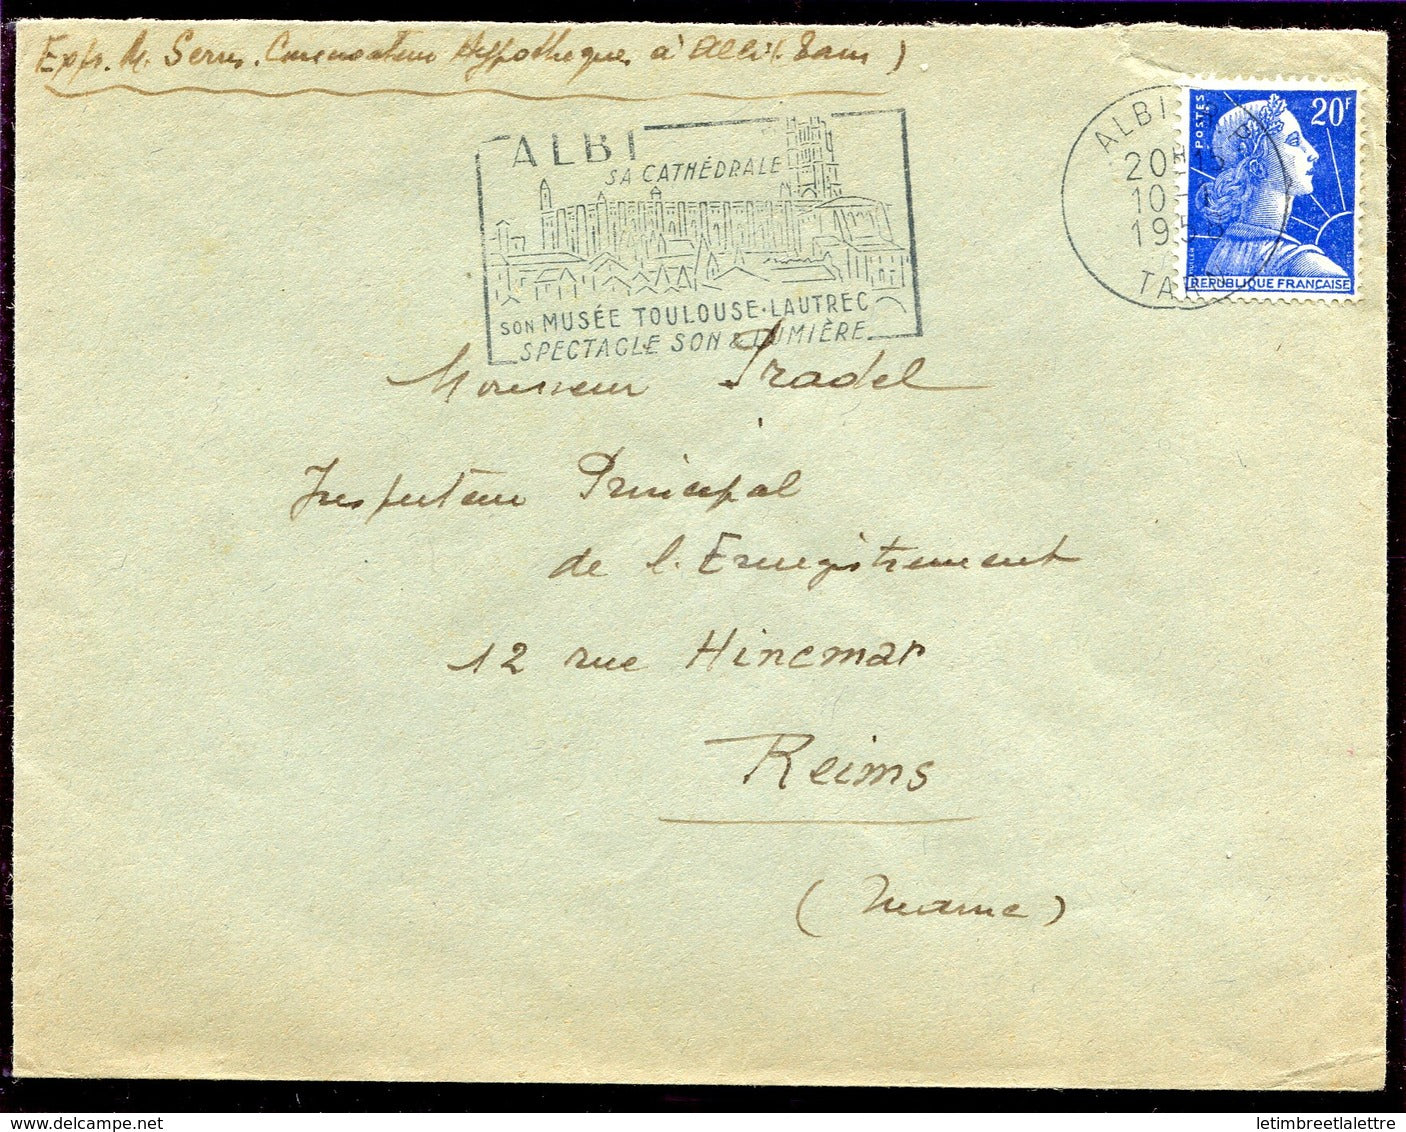 Expr. M. Serres. Conservateur Hypothèques à Albi (Tarn)
ALBI
SA CATHÉDRALE
SON MUSÉE TOULOUSE-LAUTREC
SPECTACLE SON & LUMIÈRE
ALBI
20H15
10
195
TARN
POSTES
20F
REPUBLIQUE FRANÇAISE
Monsieur Pradel
Inspecteur Principal
de l'Enregistrement
12 rue Hincmar
Reims
(Marne)
letimbreetlalettre